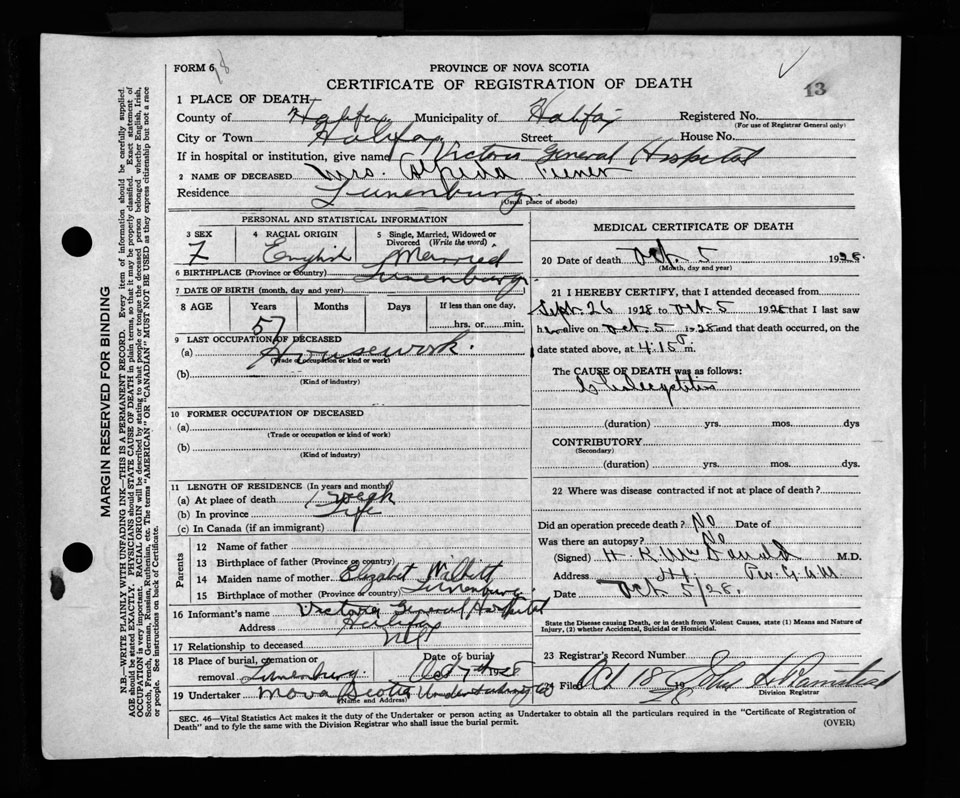 FORM 6
PROVINCE OF NOVA SCOTIA
CERTIFICATE OF REGISTRATION OF DEATH
13
1 PLACE OF DEATH
County of Halifax Municipality of Halifax Registered No.
(For use of Registrar General only)
City or Town Halifax Street House No.
If in hospital or institution, give name Victoria General Hospital
2 NAME OF DECEASED Mrs.
Residence Lunenburg
(Usual place of abode)
PERSONAL AND STATISTICAL INFORMATION
3 SEX F
4 RACIAL ORIGIN English
5 Single, Married, Widowed or Divorced (Write the word) Married
6 BIRTHPLACE (Province or Country) Lunenburg
7 DATE OF BIRTH (month, day and year)
8 AGE Years Months Days If less than one day,
57 hrs. or min.
9 LAST OCCUPATION OF DECEASED
(a) Housework.
(Trade or occupation or kind of work)
(b)
(Kind of industry)
10 FORMER OCCUPATION OF DECEASED
(a)
(Trade or occupation or kind of work)
(b)
(Kind of industry)
11 LENGTH OF RESIDENCE (In years and months)
(a) At place of death 1 week
(b) In province Life
(c) In Canada (if an immigrant)
Parents
12 Name of father
13 Birthplace of father (Province or country)
14 Maiden name of mother Elizabet
15 Birthplace of mother (Province or country) Lunenburg
16 Informant's name Victoria General Hospital
Address Halifax
17 Relationship to deceased
18 Place of burial, cremation or removal Lunenburg Date of burial Oct 7 1928
19 Undertaker Nova Scotia Undertaking Co
(Name and Address)
MEDICAL CERTIFICATE OF DEATH
20 Date of death Oct. 5 1928.
(Month, day and year)
21 I HEREBY CERTIFY, that I attended deceased from
Sept. 26 1928 to Oct. 5 1928 that I last saw
h alive on Oct. 5 1928 and that death occurred, on the
date stated above, at 4.15 m.
The CAUSE OF DEATH was as follows:
(duration) yrs. mos. dys
CONTRIBUTORY
(Secondary)
(duration) yrs. mos. dys.
22 Where was disease contracted if not at place of death?
Did an operation precede death? No Date of
Was there an autopsy? No
(Signed) H. K. McDonald M.D.
Address
Date Oct 5/28.
State the Disease causing Death, or in death from Violent Causes, state (1) Means and Nature of Injury, (2) whether Accidental, Suicidal or Homicidal.
23 Registrar's Record Number
Filed Oct 18 1928 John
Division Registrar
SEC. 46—Vital Statistics Act makes it the duty of the Undertaker or person acting as Undertaker to obtain all the particulars required in the "Certificate of Registration of
Death" and to fyle the same with the Division Registrar who shall issue the burial permit.
(OVER)
MARGIN RESERVED FOR BINDING
N.B.—WRITE PLAINLY WITH UNFADING INK—THIS IS A PERMANENT RECORD. Every item of information should be carefully supplied.
AGE should be stated EXACTLY. PHYSICIANS should STATE CAUSE OF DEATH in plain terms, so that it may be properly classified. Exact statement of
OCCUPATION is very important. RACIAL ORIGIN will be described by stating to what people or tongue the deceased person belonged whether English, Irish,
Scotch, French, German, Russian, Ruthenian, etc. The terms "AMERICAN" or "CANADIAN" MUST NOT BE USED as they express citizenship but not a race
or people. See instructions on back of Certificate.